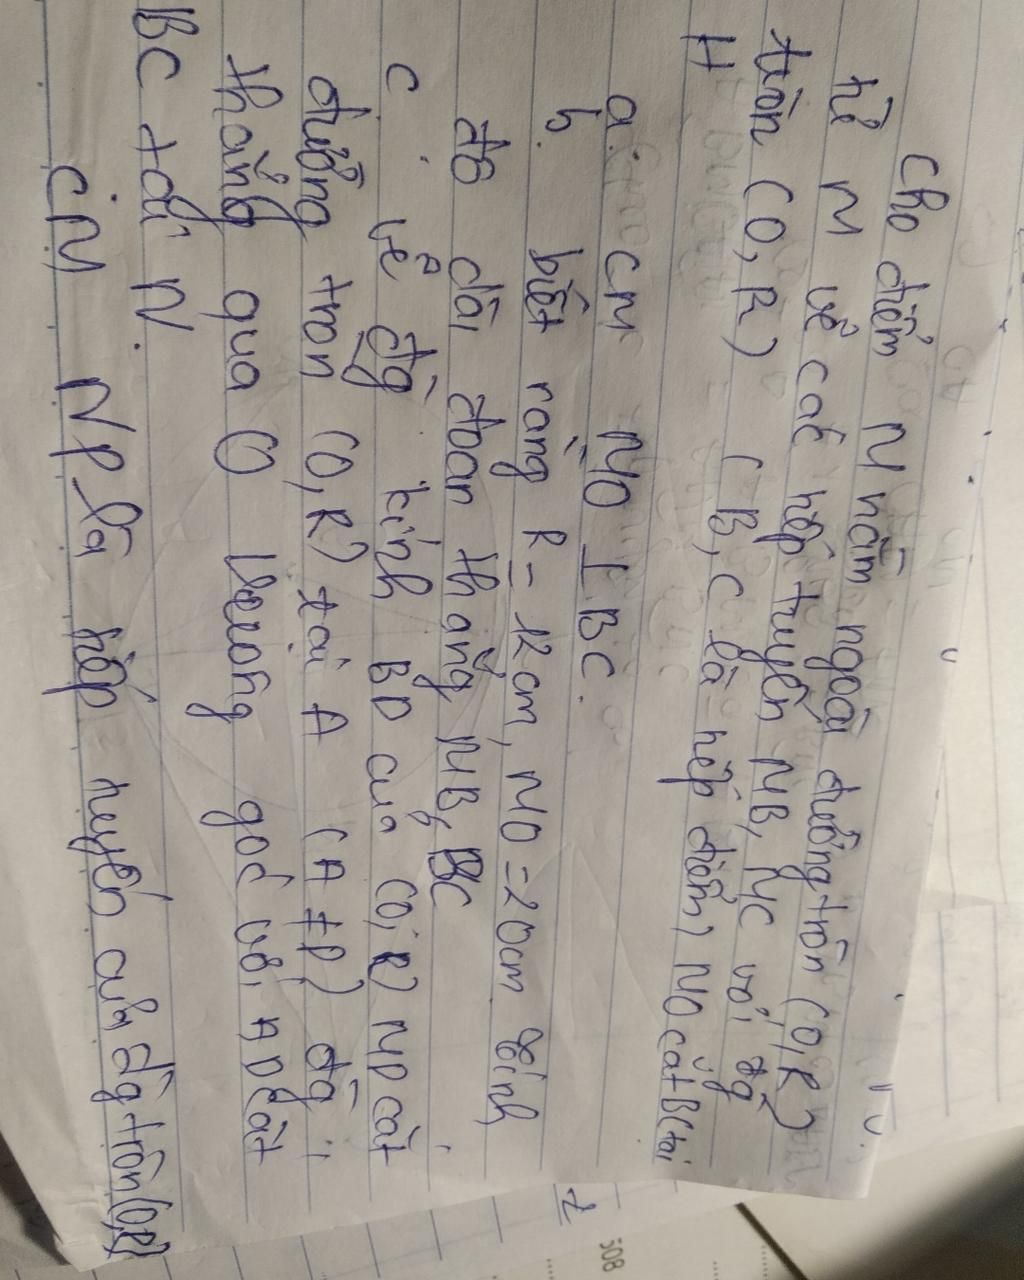 Cho điểm M nằm ngoài đường tròn (O,R)
từ M vẽ các tiếp tuyến MB, MC với đg
tròn (O,R) (B,C là tiếp điểm) MO cắt BC tại
H
a. CM MO ⊥ BC.
b. biết rằng R = 12cm, MO = 20cm tính
độ dài đoạn thẳng MB, BC
c. vẽ đg kính BD của (O,R) MD cắt
đường tron (O,R) tại A (A ≠ D) đg
thẳng qua O vuong góc với AD cắt
BC tại N.
CM ND là tiếp tuyến của đg tròn (O,R)
508